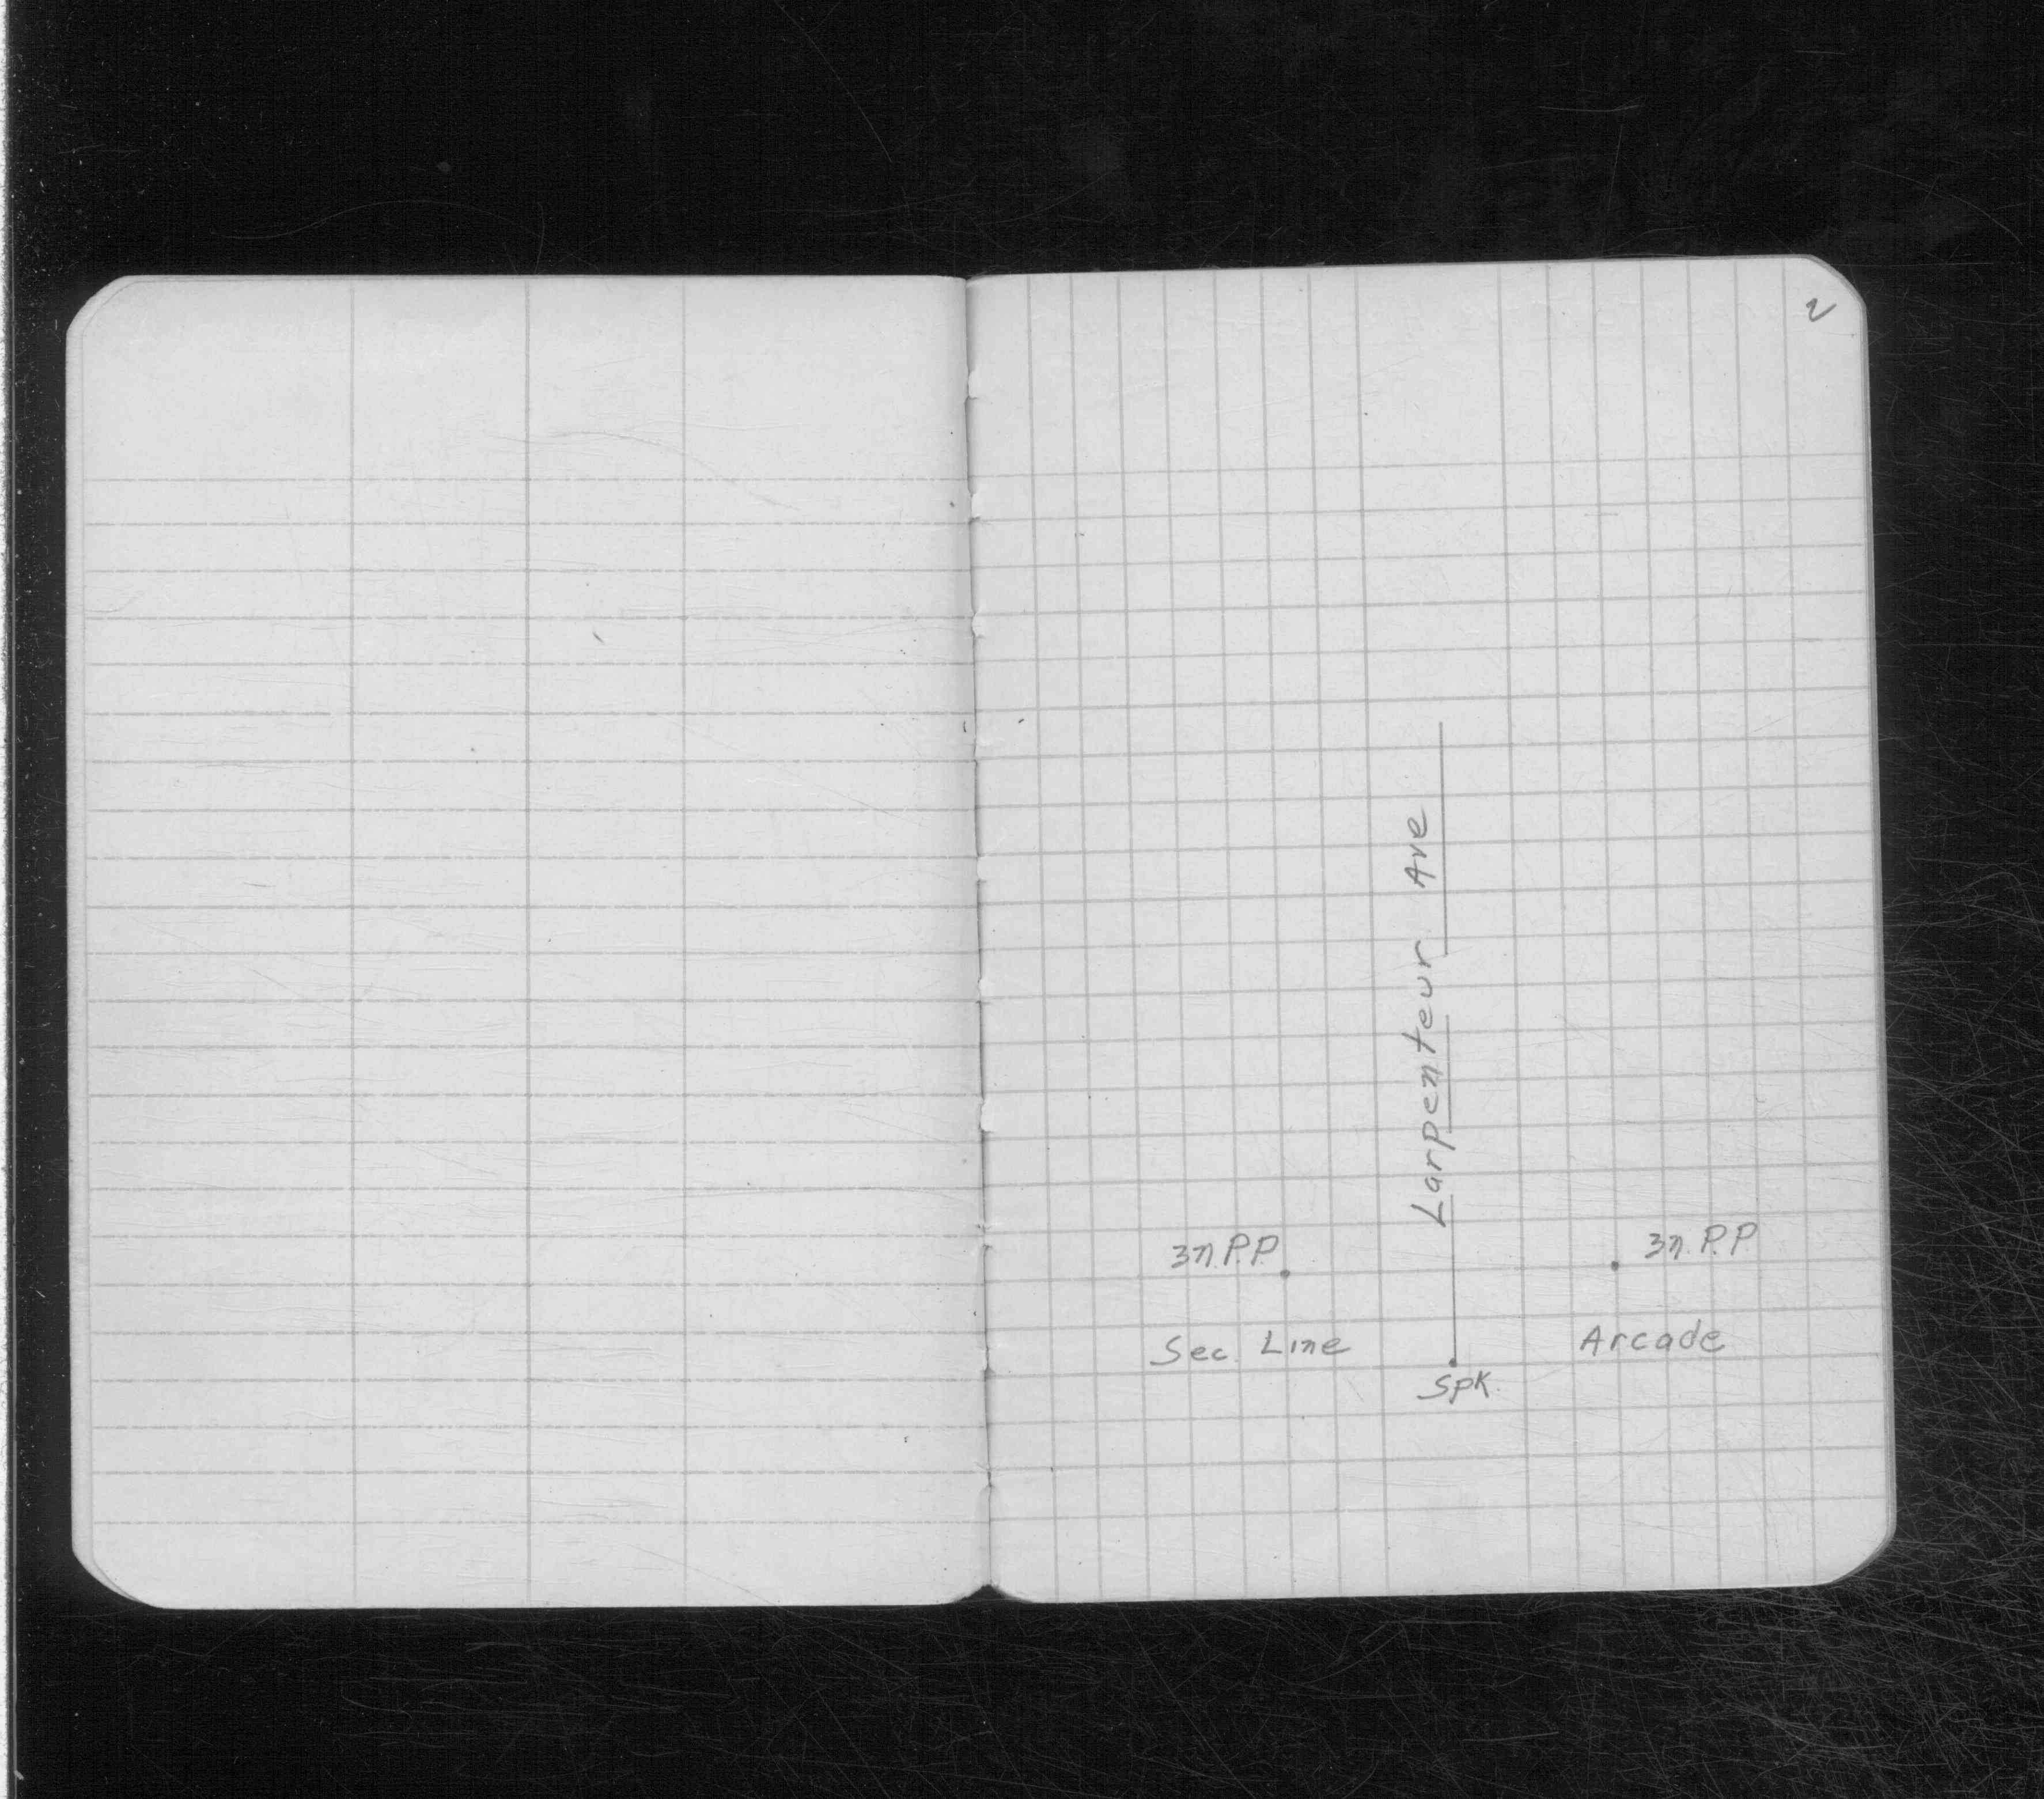 2
Larpenteur Ave
3n.P.P
3n.P.P
Sec. Line
Arcade
Spk.